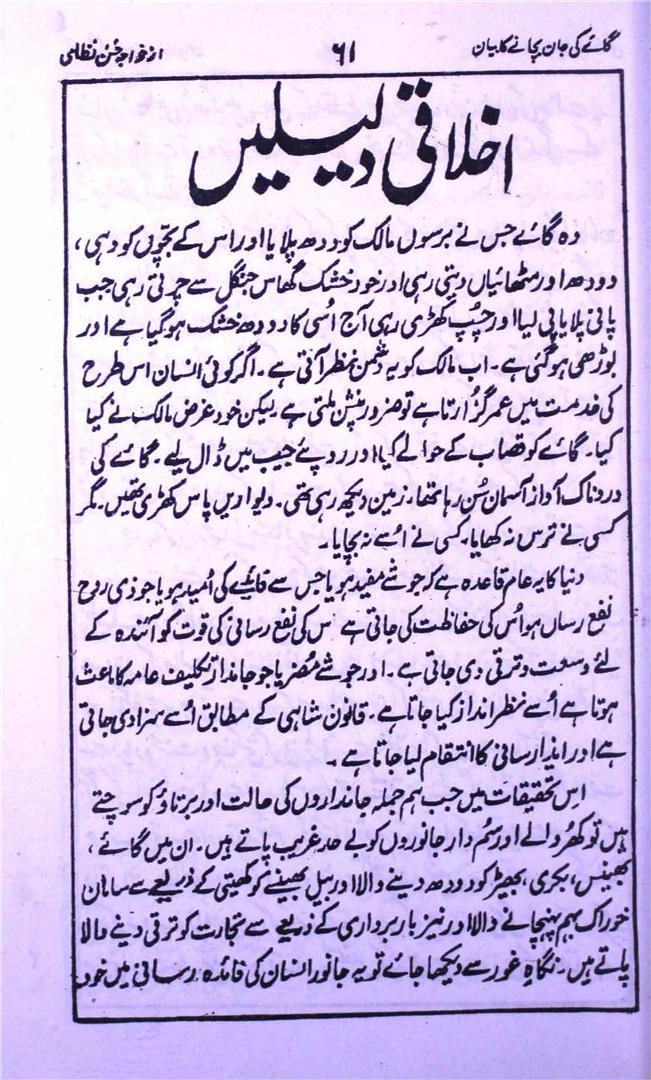 گائے کی جان بچانے کا بیان
۶۱
از خواجہ حسن نظامی
اخلاقی دلیلیں
وہ گائے جس نے برسوں مالک کو دودھ پلایا اور اس کے بچوں کو دہی،
دودھ اور مٹھائیاں دیتی رہی اور خود خشک گھاس جنگل سے چرتی رہی جب
پانی پلایا پی لیا اور چپ کھڑی رہی آج اُسی کا دودھ خشک ہو گیا ہے اور
بوڑھی ہو گئی ہے۔ اب مالک کو یہ دشمن نظر آتی ہے۔ اگر کوئی انسان اس طرح
کی خدمت میں عمر گزارتا ہے تو ضرور پنشن ملتی ہے لیکن خود غرض مالک نے کیا
کیا۔ گائے کو قصاب کے حوالے کیا اور روپئے جیب میں ڈال لیے۔ گائے کی
دردناک آواز آسمان سُن رہا تھا۔ زمین دیکھ رہی تھی۔ دیواریں پاس کھڑی تھیں۔ مگر
کسی نے ترس نہ کھایا۔ کسی نے اُسے نہ بچایا۔
دنیا کا یہ عام قاعدہ ہے کہ جو شے مفید ہو یا جس سے فائدے کی اُمید ہو یا جو ذی روح
نفع رساں ہو اُس کی حفاظت کی جاتی ہے اس کی نفع رسانی کی قوت کو آئندہ کے
لئے وسعت و ترقی دی جاتی ہے۔ اور جو شے مُضر یا جو جاندار تکلیف عامہ کا باعث
ہوتا ہے اُسے نظر انداز کیا جاتا ہے۔ قانون شاہی کے مطابق اُسے سزا دی جاتی
ہے اور ایذا رسانی کا انتقام لیا جاتا ہے۔
اس تحقیقات میں جب ہم جملہ جانداروں کی حالت اور برتاؤ کو سوچتے
ہیں تو کھُر والے اور سُم دار جانوروں کو بے حد غریب پاتے ہیں۔ ان میں گائے،
بھینس، بکری، بھیڑ کو دودھ دینے والا اور بیل بھینسے کو کھیتی کے ذریعے سے سامان
خوراک بہم پہنچانے والا اور نیز بار برداری کے ذریعے سے تجارت کو ترقی دینے والا
پاتے ہیں۔ نگاہِ غور سے دیکھا جائے تو یہ جانور انسان کی فائدہ رسانی میں خود